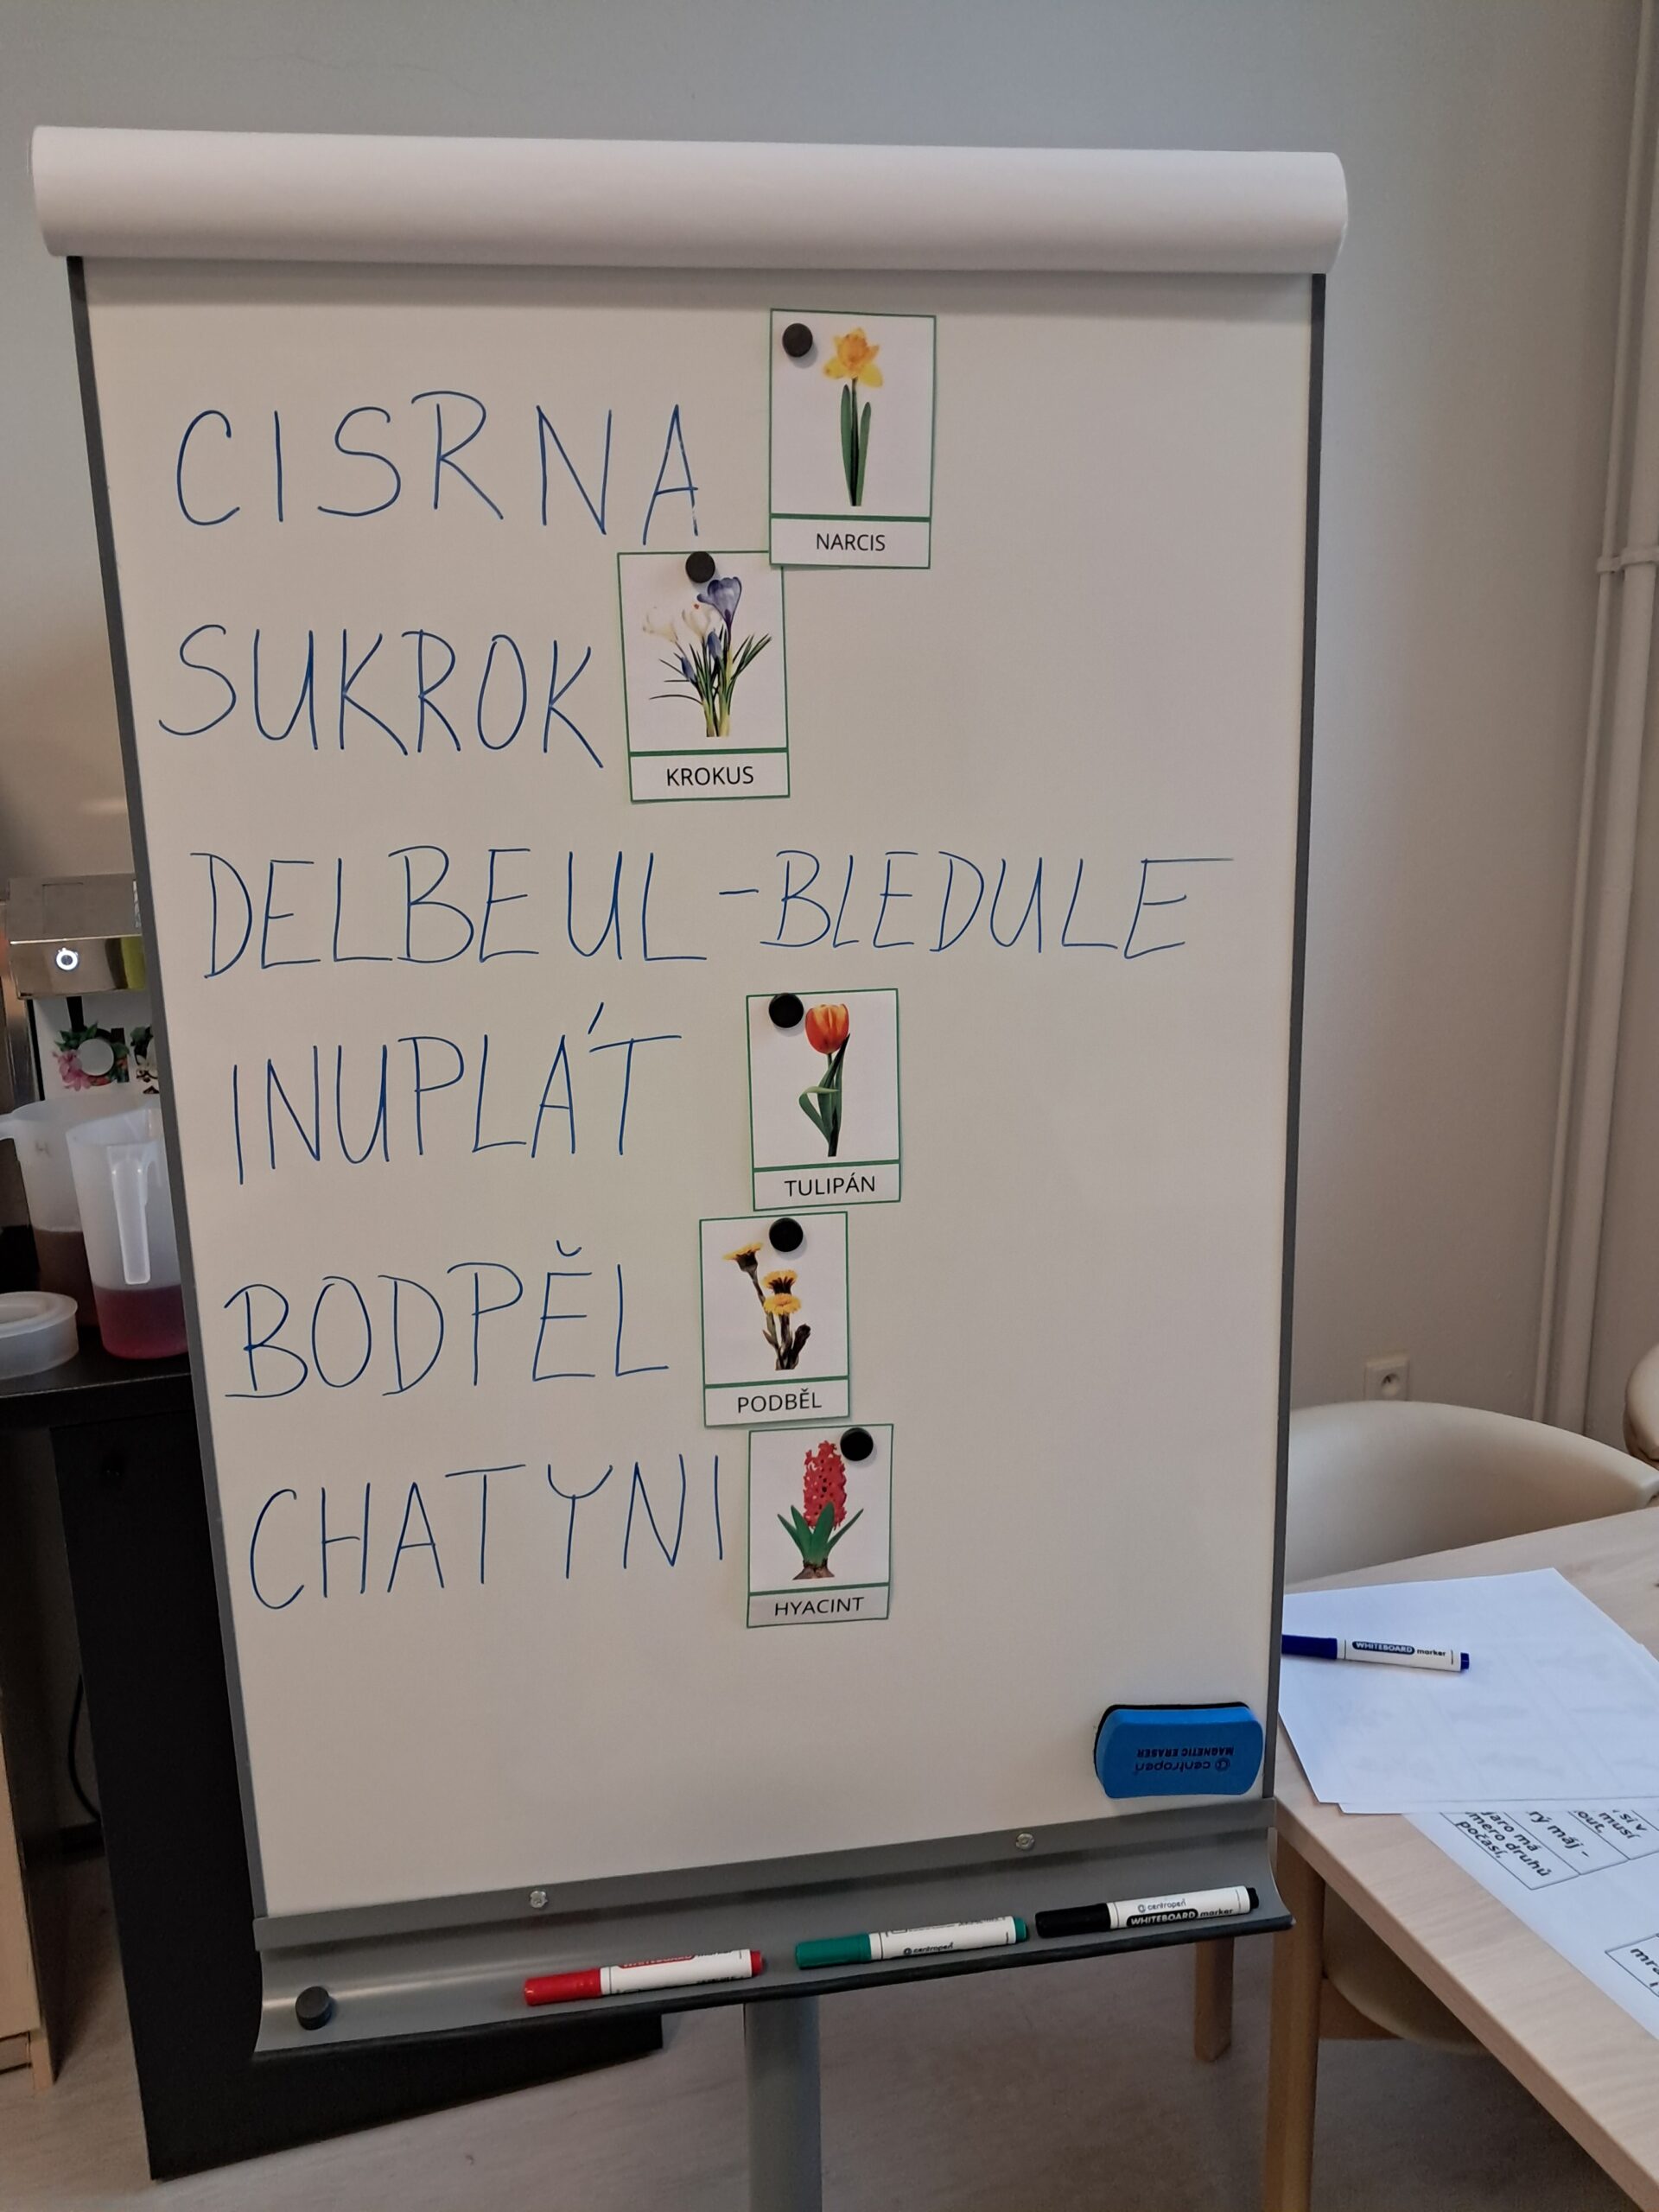 CISRNA
NARCIS
SUKROK
KROKUS
DELBEUL - BLEDULE
INUPLÁT
TULIPÁN
BODPĚL
PODBĚL
CHATYNI
HYACINT
WHITEBOARD marker
centropen
MAGNETIC ERASER
sí v
musí
out.
rý máj –
jaro má
druhů
počasí.
centropen
WHITEBOARD marker
centropen